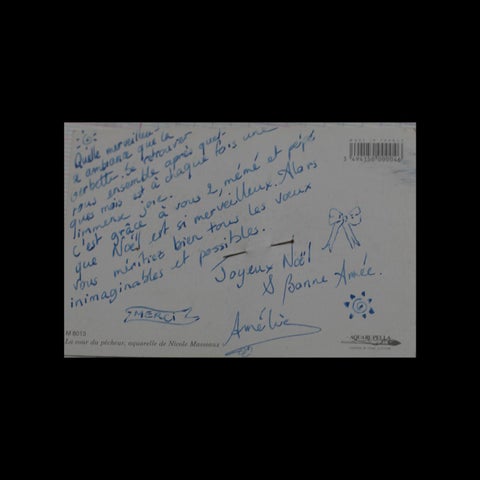 Quelle merveilleu-
se ambiance que la
verbotte. Se retrouver
tous ensemble après quel-
ques mois est à chaque fois une
immense joie.
C'est grâce à vous 2, mémé et pépé
que Noël est si merveilleux. Alors
vous méritiez bien tous les vœux
inimaginables et possibles.
Joyeux Noël
& Bonne Année.
MERCI
Amélie
M 8015
La cour du pêcheur, aquarelle de Nicole Massiaux
MADE IN FRANCE
3 494150 080046
AQUARUPELLA